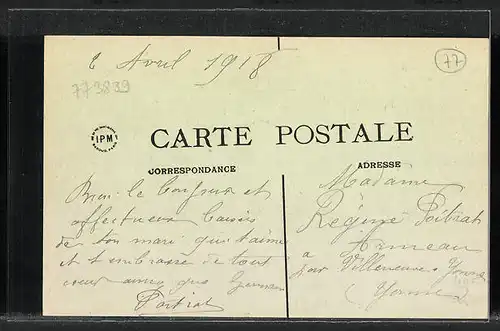 2 Avril 1918
77
773839
IPM
CARTE POSTALE
CORRESPONDANCE
ADRESSE
Bien le bonjour et
affectueux baisés
de ton mari qui t'aime
et t'embrasse de tout
coeur ainsi que Germain
Poitrat
Madame
Régine Poitrat
Armeau
a
par Villeneuve s Yonne
(Yonne)